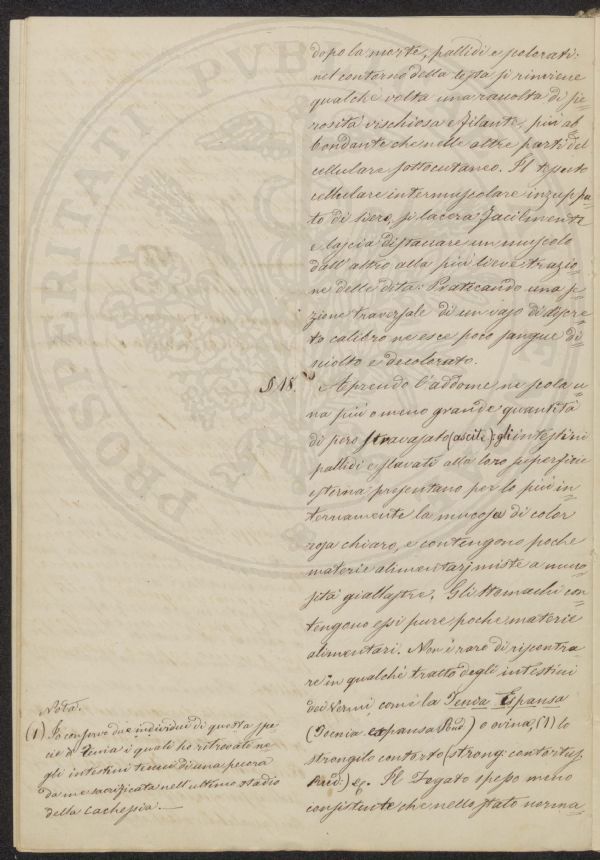 dopo la morte, pallidi e scolorati:
nel contorno della testa si rinviene
qualche volta una raccolta di sie-
rosità vischiosa e filante, più ab-
bondante che nelle altre parti del
cellulare sottocutaneo. Il tessuto
cellulare intermuscolare inzuppa-
to di siero, si lacera facilmente
e lascia distaccare un muscolo
dall'altro alla più lieve trazio-
ne delle dita. Praticando una se-
zione traversale di un vaso di discre-
to calibro ne esce poco sangue di-
sciolto e decolorato.
§ 18. Aprendo l'addome ne scola u-
na più o meno grande quantità
di siero stravasato (ascite): gli intestini
pallidi e slavati alla loro superficie
esterna presentano per lo più in-
ternamente la mucosa di color
rosa chiaro, e contengono poche
materie alimentarj miste a muco-
sità giallastre. Gli stomachi con-
tengono essi pure poche materie
alimentari. Non è raro di riscontra-
re in qualche tratto degli intestini
dei Vermi, come la Tenia Espansa
(Toenia expansa Rud.) o ovina, (1) lo
strongilo contorto (strong: contortus
Rud.) &. Il Fegato spesso meno
consistente che nello stato norma-
Nota.
(1) Io conservo due individui di questa spe-
cie di tenia i quali ho ritrovato ne-
gli intestini tenui di una pecora
da me sacrificata nell'ultimo stadio
della Cachessia.
PROSPERITATI PUBL